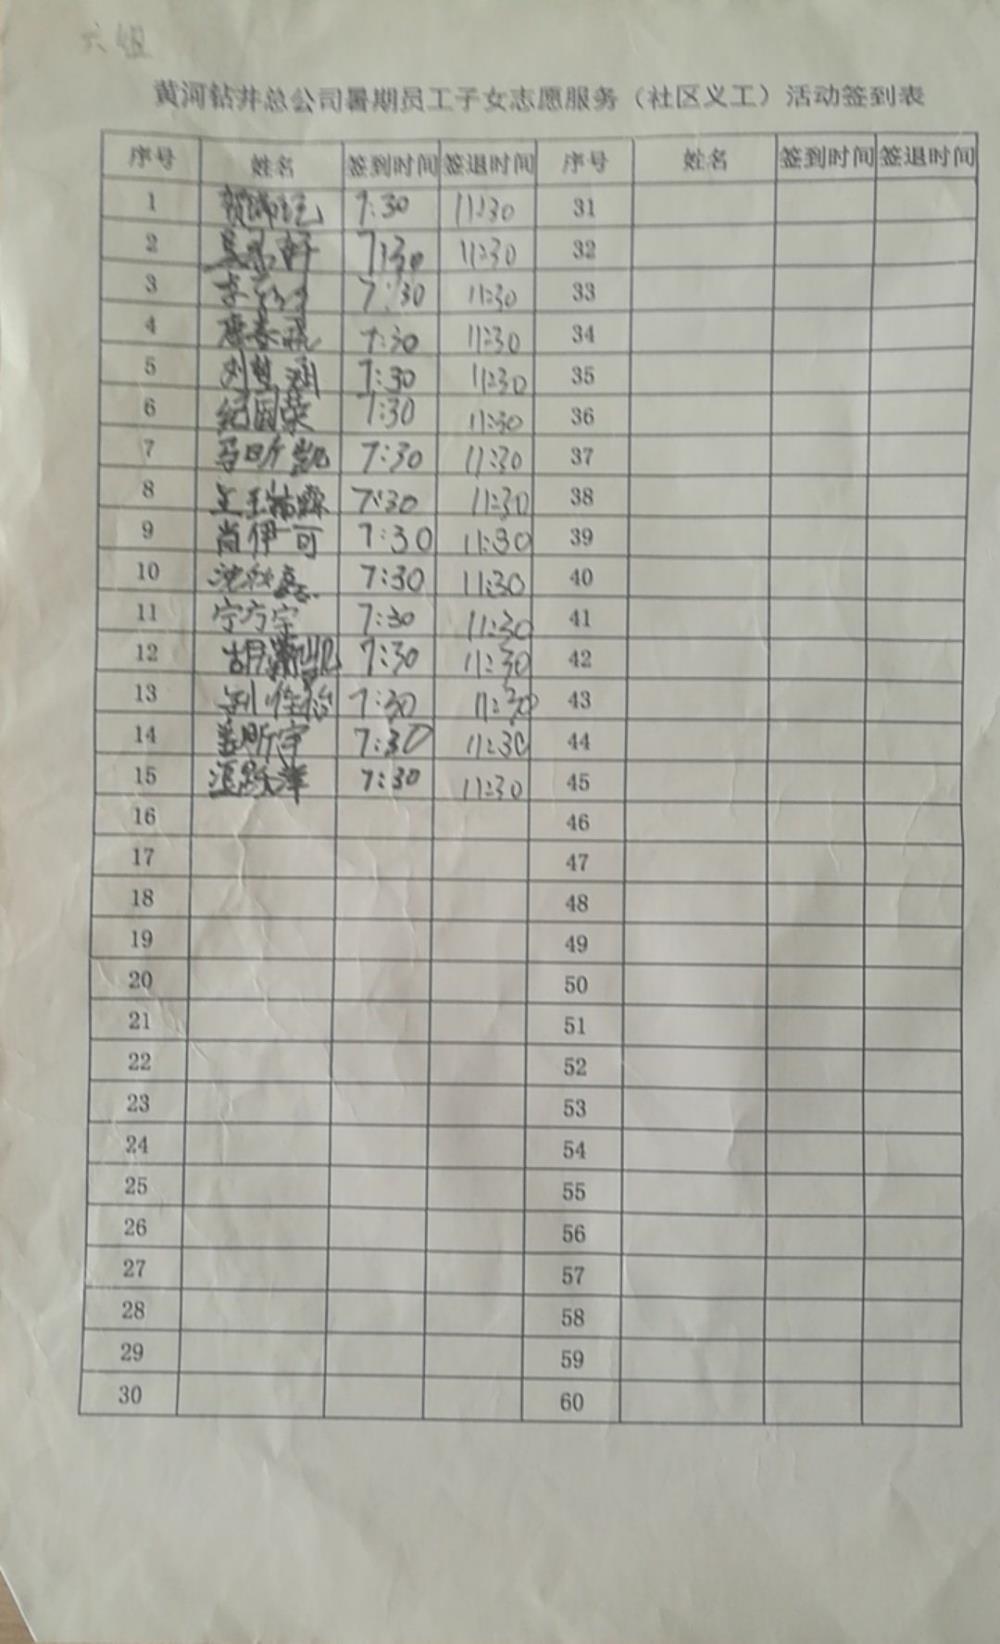 六组
黄河钻井总公司暑期员工子女志愿服务（社区义工）活动签到表
序号 姓名 签到时间 签退时间 序号 姓名 签到时间 签退时间
1 7:30 11:30 31
2 7:30 11:30 32
3 7:30 11:30 33
4 7:30 11:30 34
5 刘 涵 7:30 11:30 35
6 纪国荣 7:30 11:30 36
7 马昕凯 7:30 11:30 37
8 7:30 11:30 38
9 肖伊可 7:30 11:30 39
10 7:30 11:30 40
11 宁方宇 7:30 11:30 41
12 胡 凯 7:30 11:30 42
13 刘佳怡 7:30 11:30 43
14 昕宇 7:30 11:30 44
15 跃洋 7:30 11:30 45
16 46
17 47
18 48
19 49
20 50
21 51
22 52
23 53
24 54
25 55
26 56
27 57
28 58
29 59
30 60